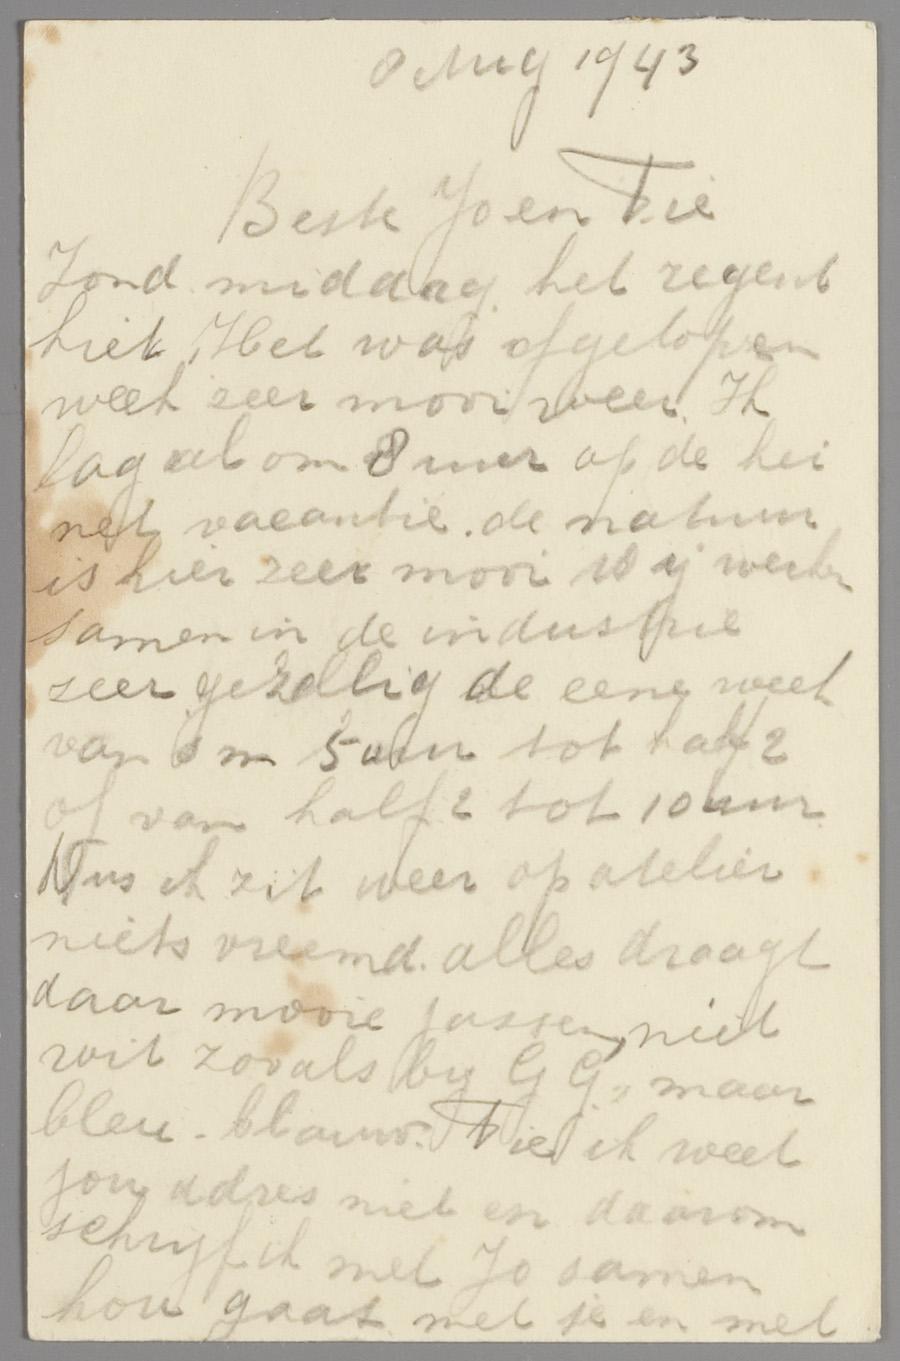 8 Aug 1943
Beste Jo en Fie
Zond. middag. het regent
hier. Het was afgelopen
week zeer mooi weer. Ik
lag al om 8 uur op de hei
net vacantie. de natuur
is hier zeer mooi Wij werken
samen in de industrie
zeer gezellig de eene week
van om 5 uur tot half 2
of van half 2 tot 10 uur
Dus ik zit weer op atelier
niets vreemd. alles draagt
daar mooie jassen, niet
wit zooals by G G. maar
bleu - blauw. Fie ik weet
jou adres niet en daarom
schryf ik met Jo samen
hou gaat met je en met